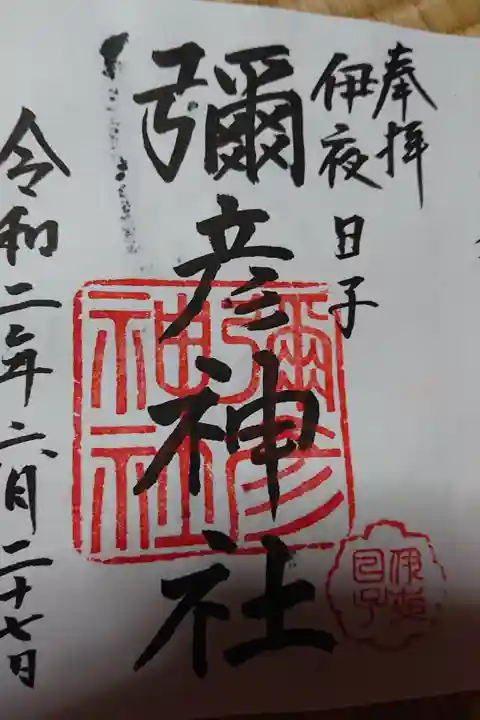 奉拝
伊夜日子
彌彦神社
彌彦
神社
令和二年六月二十七日